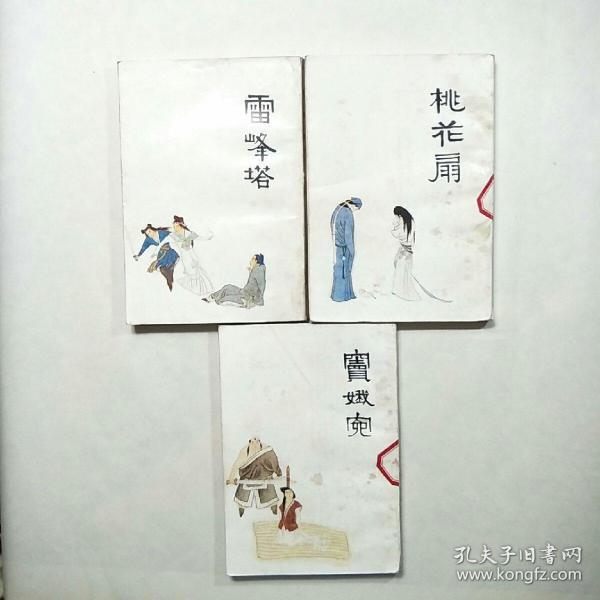 雷峰塔
桃花扇
竇娥冤
孔夫子旧书网
www.kongfz.com